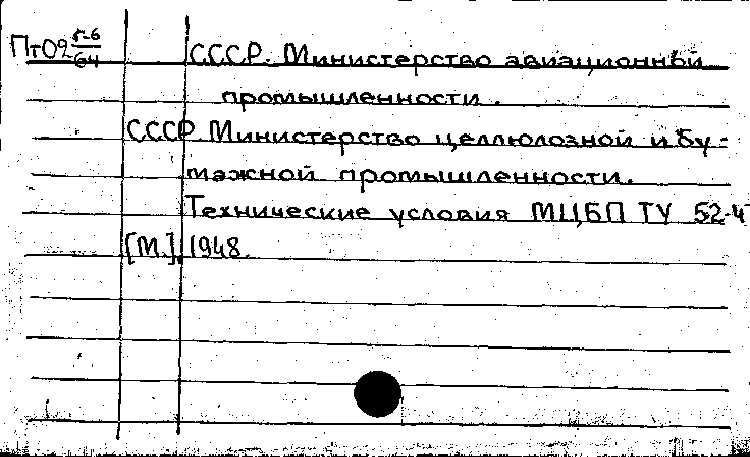 ПтО9 5-6/64
СССР. Министерство авиационный
промышленности.
СССР Министерство целлюлозной и бу-
мажной промышленности.
Технические условия МЦБП ТУ 52-4
[М.], 1948.